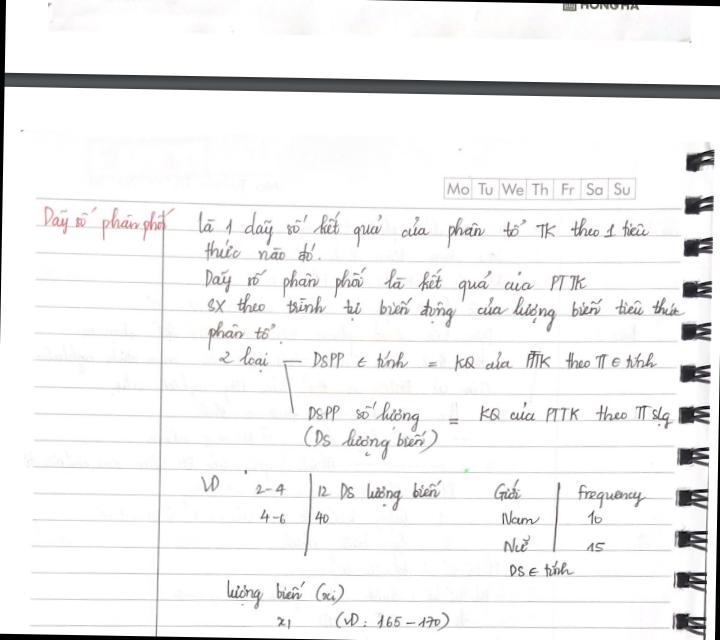 HONG HA
Mo Tu We Th Fr Sa Su
Dãy số phân phối là 1 dãy số kết quả của phân tổ TK theo 1 tiêu
thức nào đó.
Dãy số phân phối là kết quả của PTTK
SX theo trình tự biến động của lượng biến tiêu thức
phân tổ.
2 loại — DSPP ∈ tính = KQ của PTTK theo TT ∈ tính
DSPP số lượng = KQ của PTTK theo TT slg
(DS lượng biến)
VD 2-4 12 DS lượng biến Giới frequency
4-6 40 Nam 10
Nữ 15
DS ∈ tính
lượng biến (xi)
x1 (VD: 165-170)